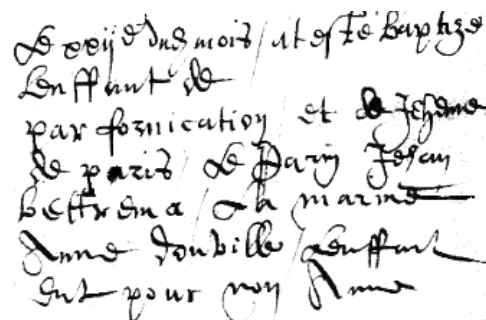 Le xxij e dud mois / at este baptize
Lenffant de
par fornication et de Jehenne
de paris / Le Parin Jehan
bettrema / La marine
Anne douville Lenffant
eut pour non Anne